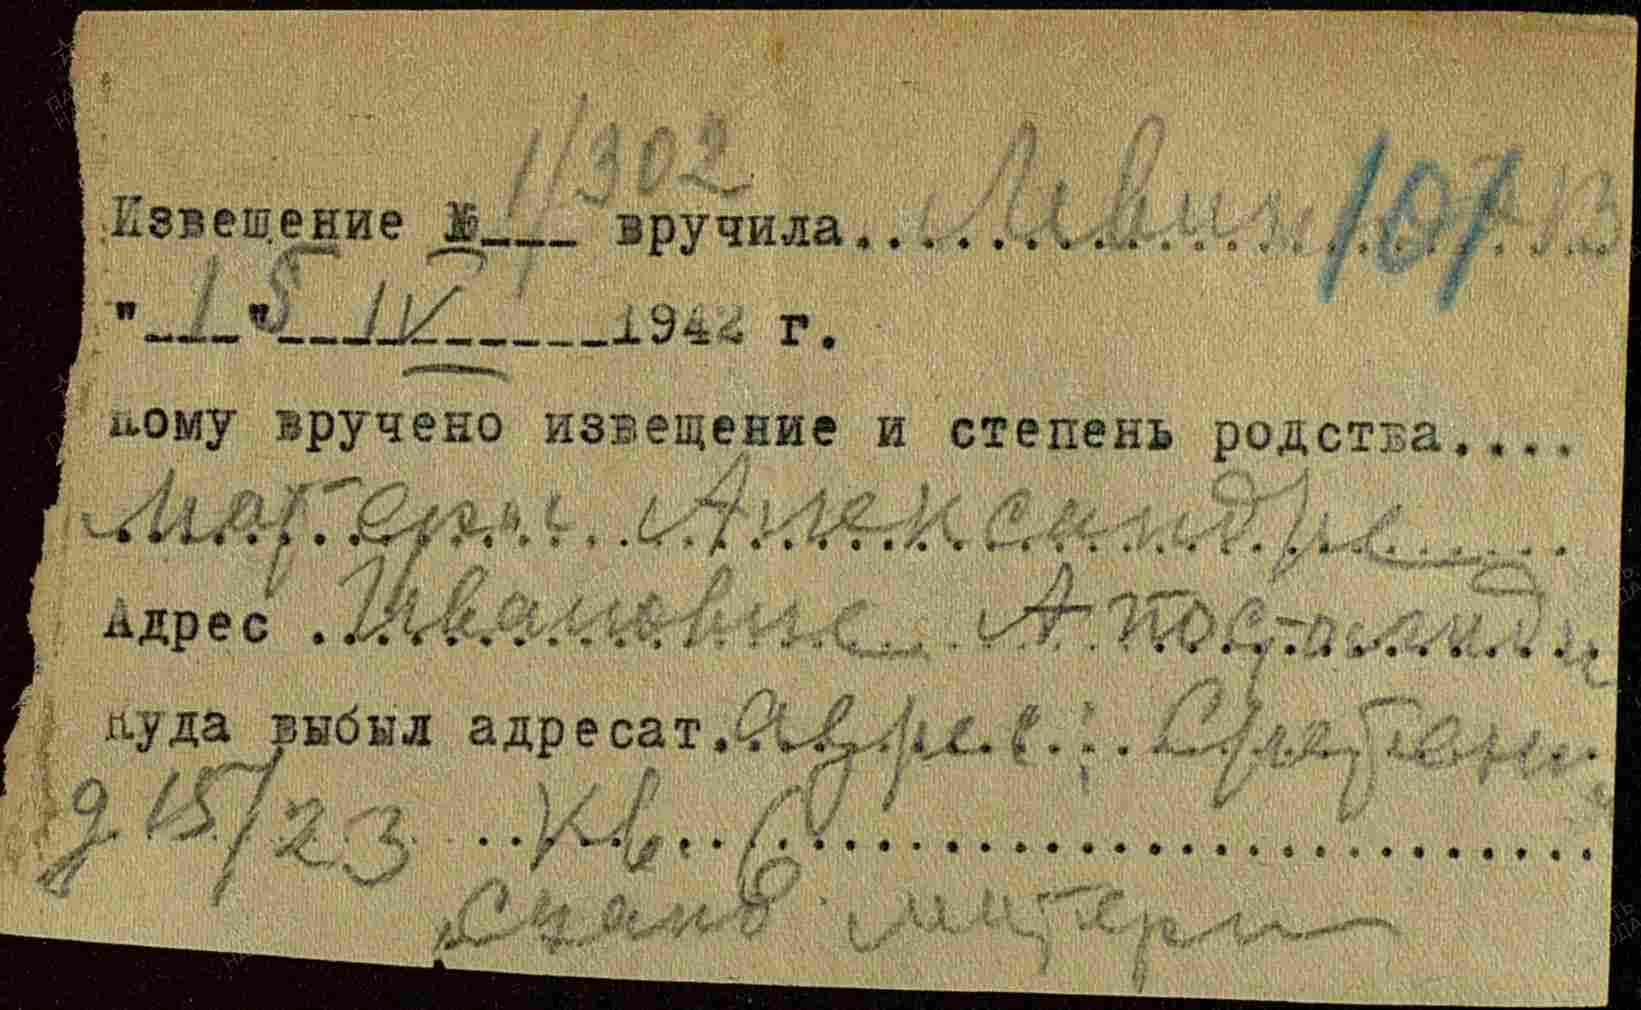 1/302
Извещение №___ вручила Левина 107 В
"1" 5 IV 1942 г.
Кому вручено извещение и степень родства....
матери Александре
Адрес Ивановне Апостолиди
Куда выбыл адресат. адрес: Сретенк
д 15/23 кв. 6
матери